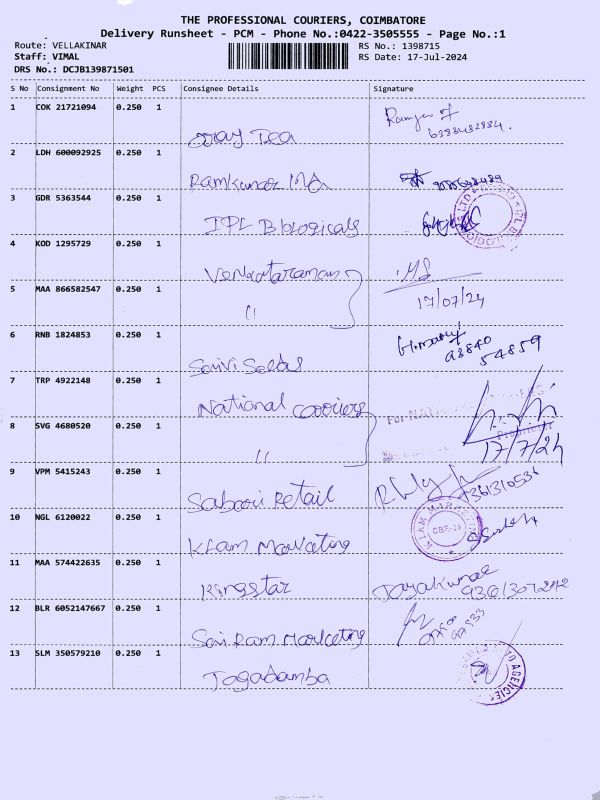 THE PROFESSIONAL COURIERS, COIMBATORE
Delivery Runsheet - PCM - Phone No.:0422-3505555 - Page No.:1
Route: VELLAKINAR
RS No.: 1398715
Staff: VIMAL
RS Date: 17-Jul-2024
DRS No.: DCJB139871501
S No Consignment No Weight PCS Consignee Details Signature
1 COK 21721094 0.250 1
6383432834.
2 LDH 600092925 0.250 1
Ramkumar
3 GDR 5363544 0.250 1
IPL Biologicals
4 KOD 1295729 0.250 1
Venkataraman
5 MAA 866582547 0.250 1
17/07/24
"
6 RNB 1824853 0.250 1
93840
54859
7 TRP 4922148 0.250 1
National Carriers
For NAT
8 SVG 4680520 0.250 1
17/7/24
"
9 VPM 5415243 0.250 1
Sabari Retail
10 NGL 6120022 0.250 1
CBE-29
Marketing
11 MAA 574422635 0.250 1
Kingstar
Jayakumar
12 BLR 6052147667 0.250 1
Sai Ram Marketing
13 SLM 350579210 0.250 1
Jagadamba